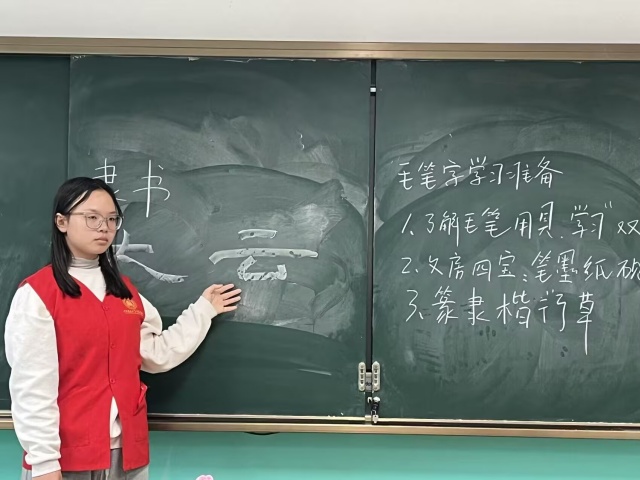 隶书
云
毛笔字学习准备
1.了解毛笔用具,学习"双
2.文房四宝:笔墨纸砚
3.篆隶楷行草